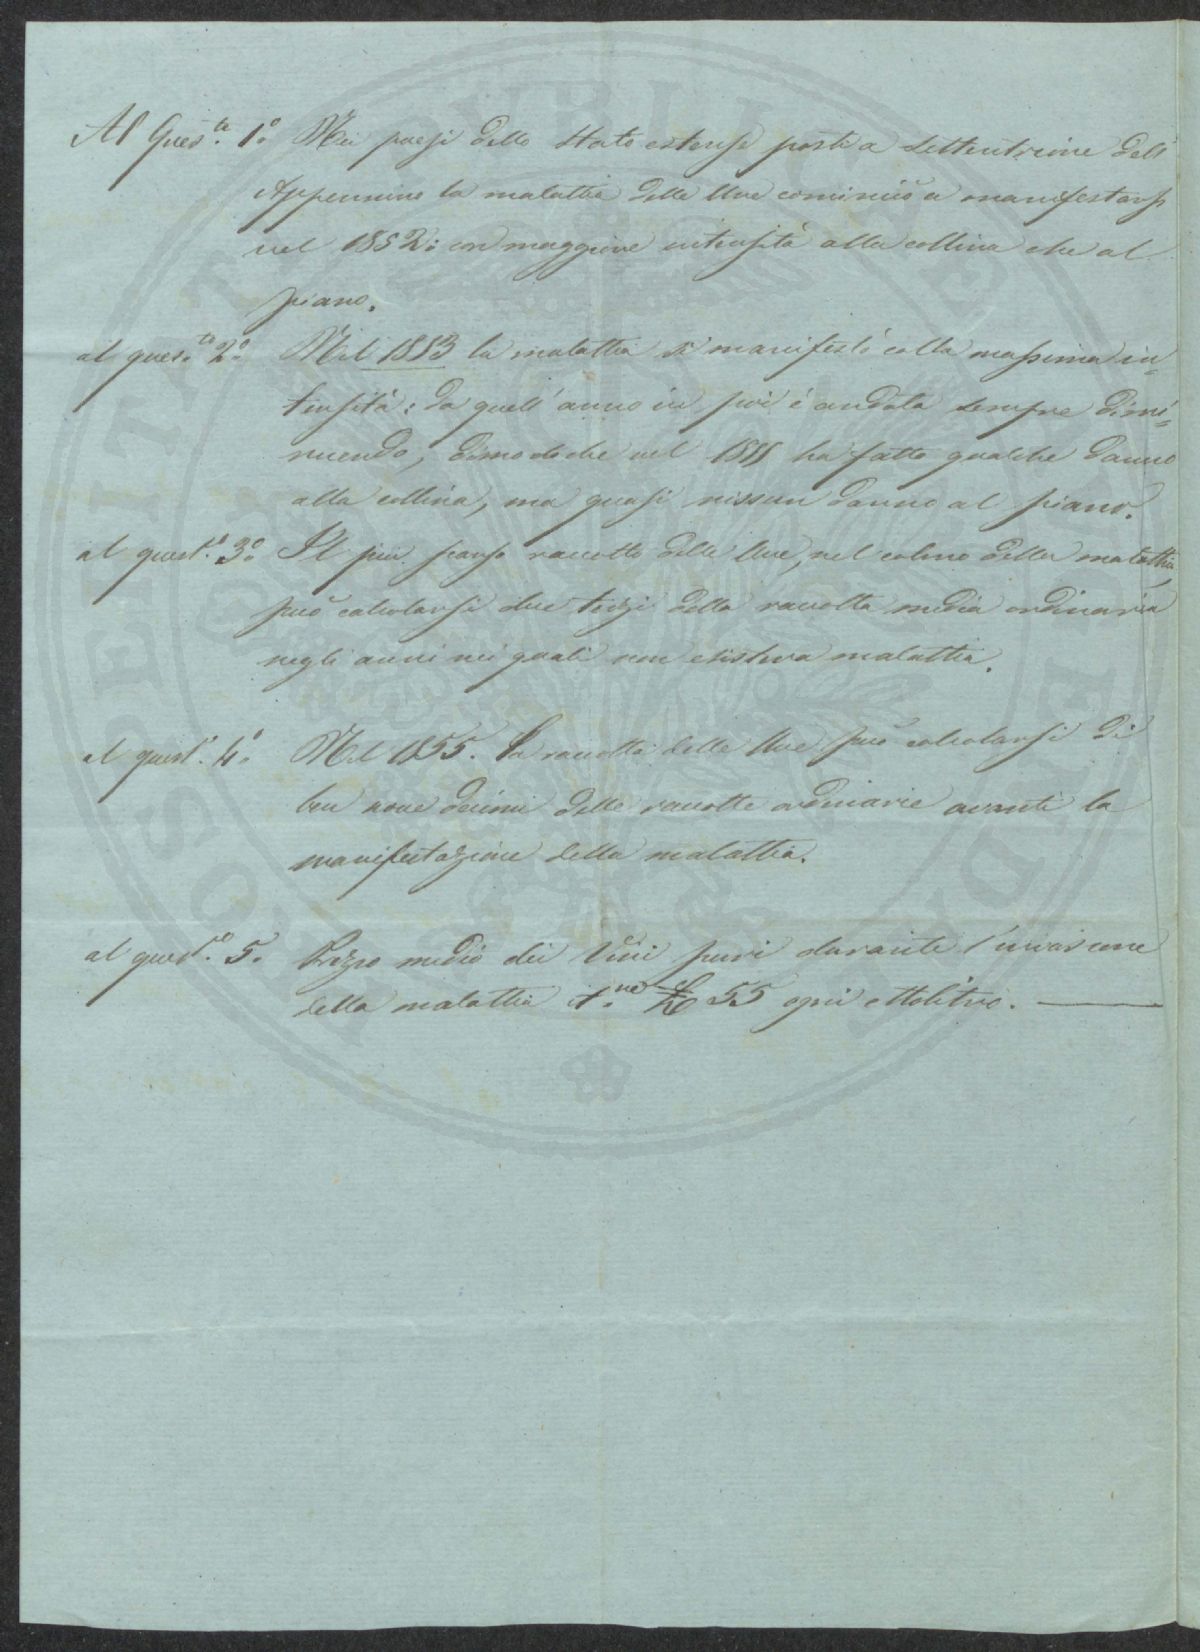 Al Ques.to 1.o Nei paesi dello Stato estense posti a settentrione dell'
Appennino la malattia delle Uve cominciò a manifestarsi
nel 1852: con maggiore intensità alla collina che al
piano.
al ques.to 2.o Nel 1853 la malattia si manifestò colla massima in=
tensità: da quell'anno in poi è andata sempre dimi=
nuendo, dimodochè nel 1855 ha fatto qualche danno
alla collina, ma quasi nissun danno al piano.
al quest.o 3.o Il più scarso raccolto delle Uve, nel colmo della malattia,
può calcolarsi due terzi della raccolta media ordinaria
negli anni nei quali non esisteva malattia.
al quest.o 4.o Nel 1855. La raccolta delle Uve può calcolarsi di
ben nove decimi delle raccolte ordinarie avanti la
manifestazione della malattia.
al quest.o 5. Prezzo medio dei Vini puri durante l'invasione
della malattia it.ne £ 55 ogni ettolitro.